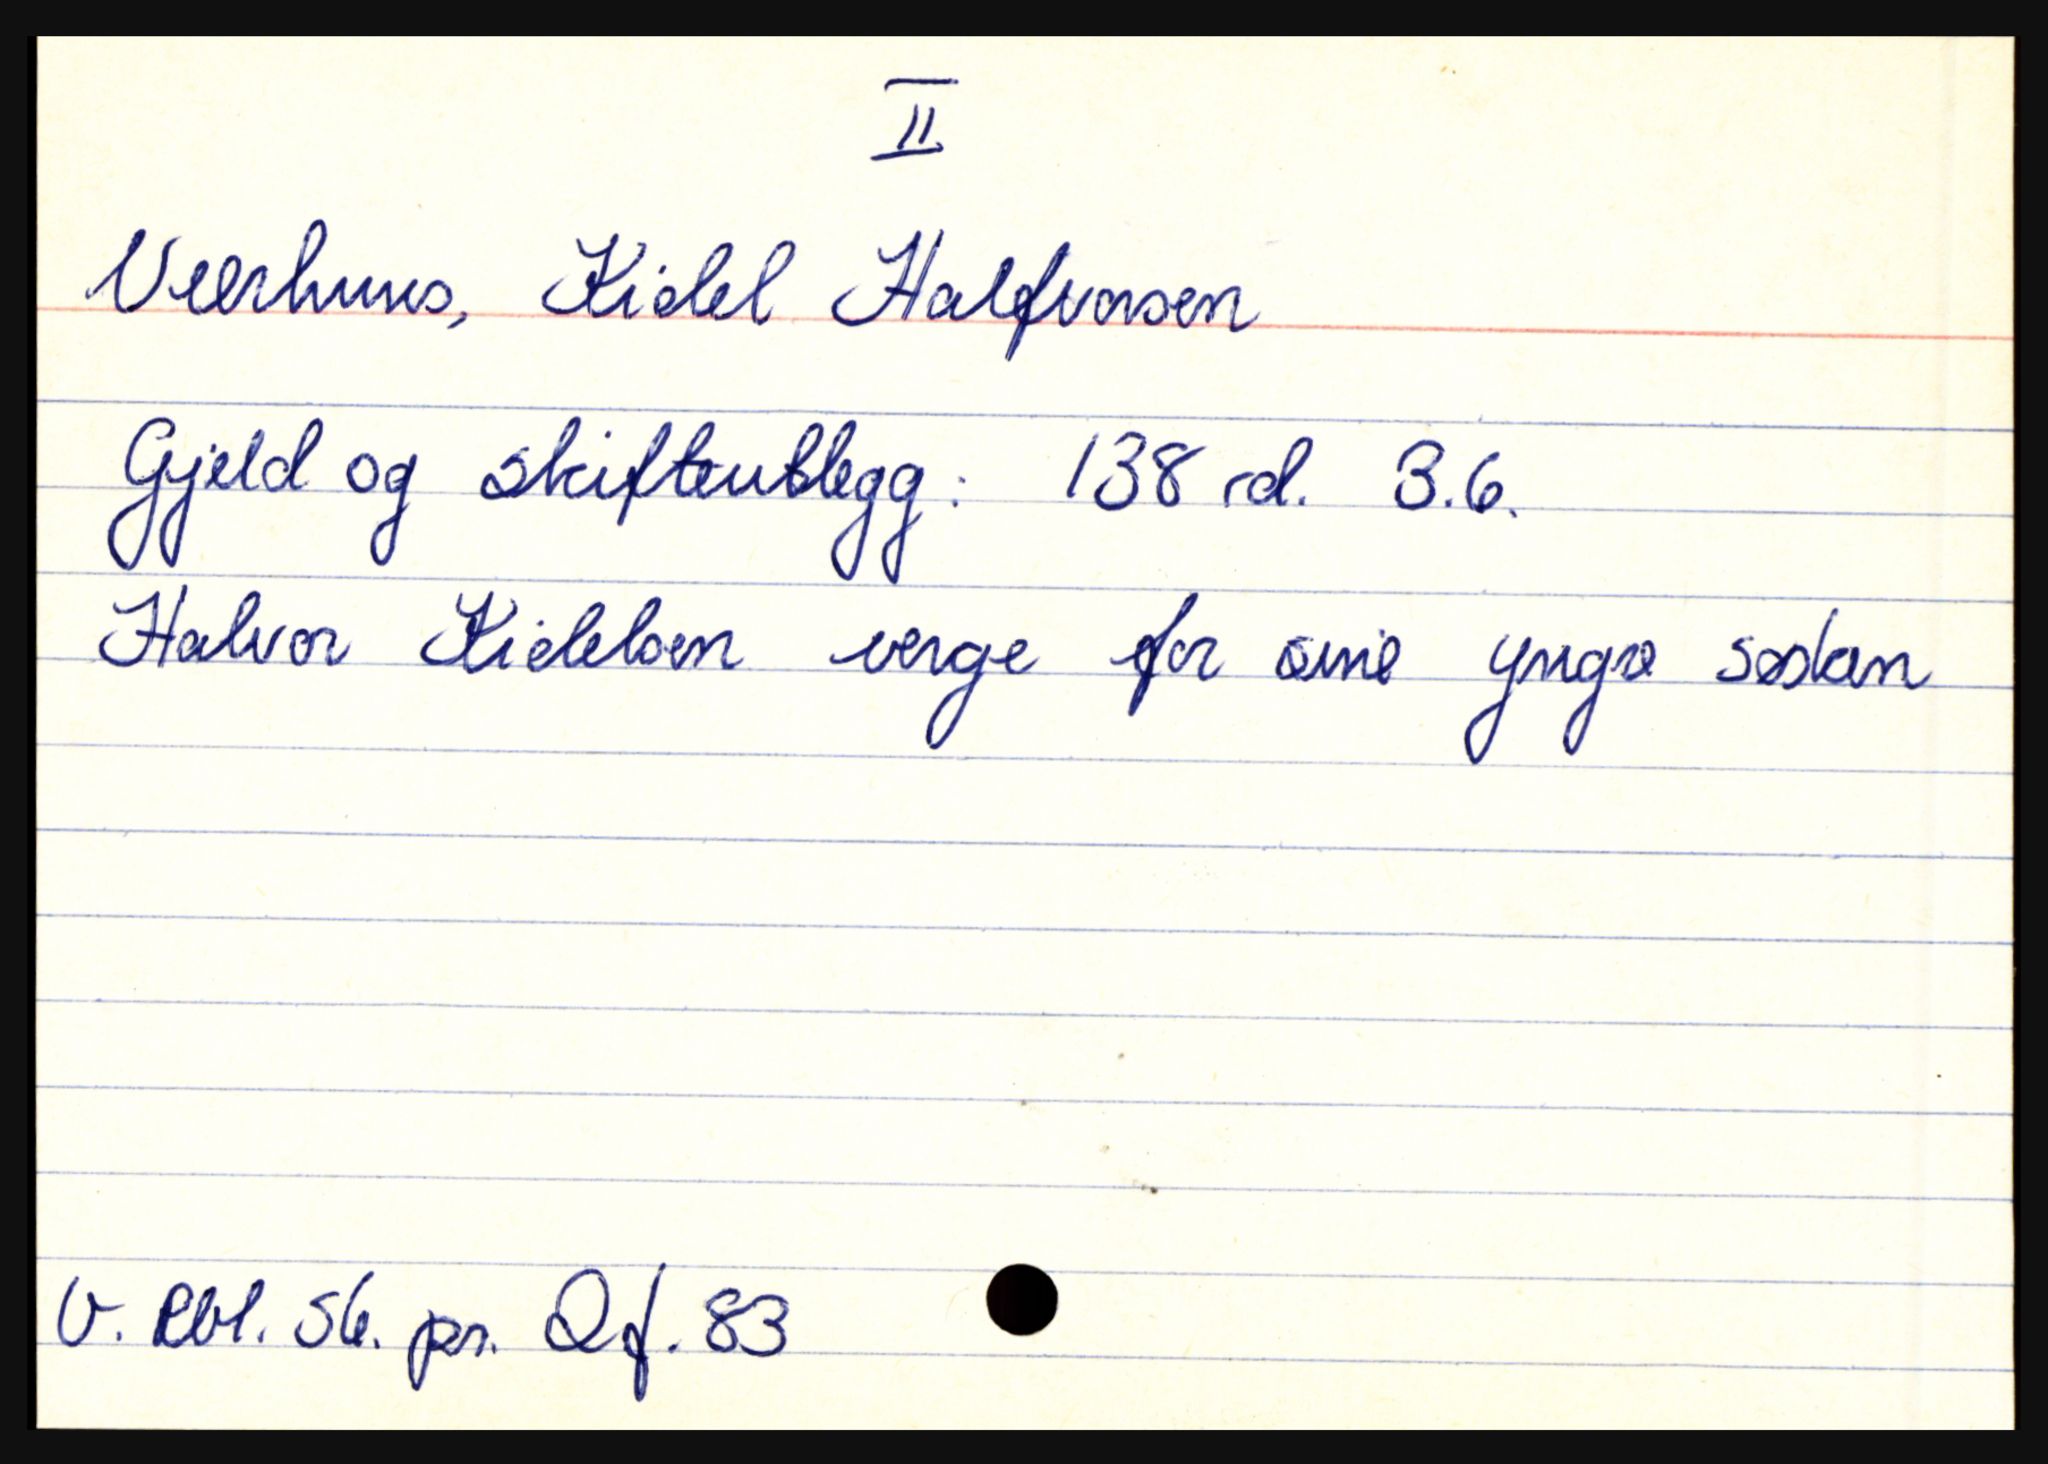 II
Veerhuus, Kidel Halfvorsen
Gjeld og skifteutlegg: 138 rd. 3.6.
Halvor Kidelsen verge for sine yngre søsken
V. Rbl. Sk. pr. Qf. 83